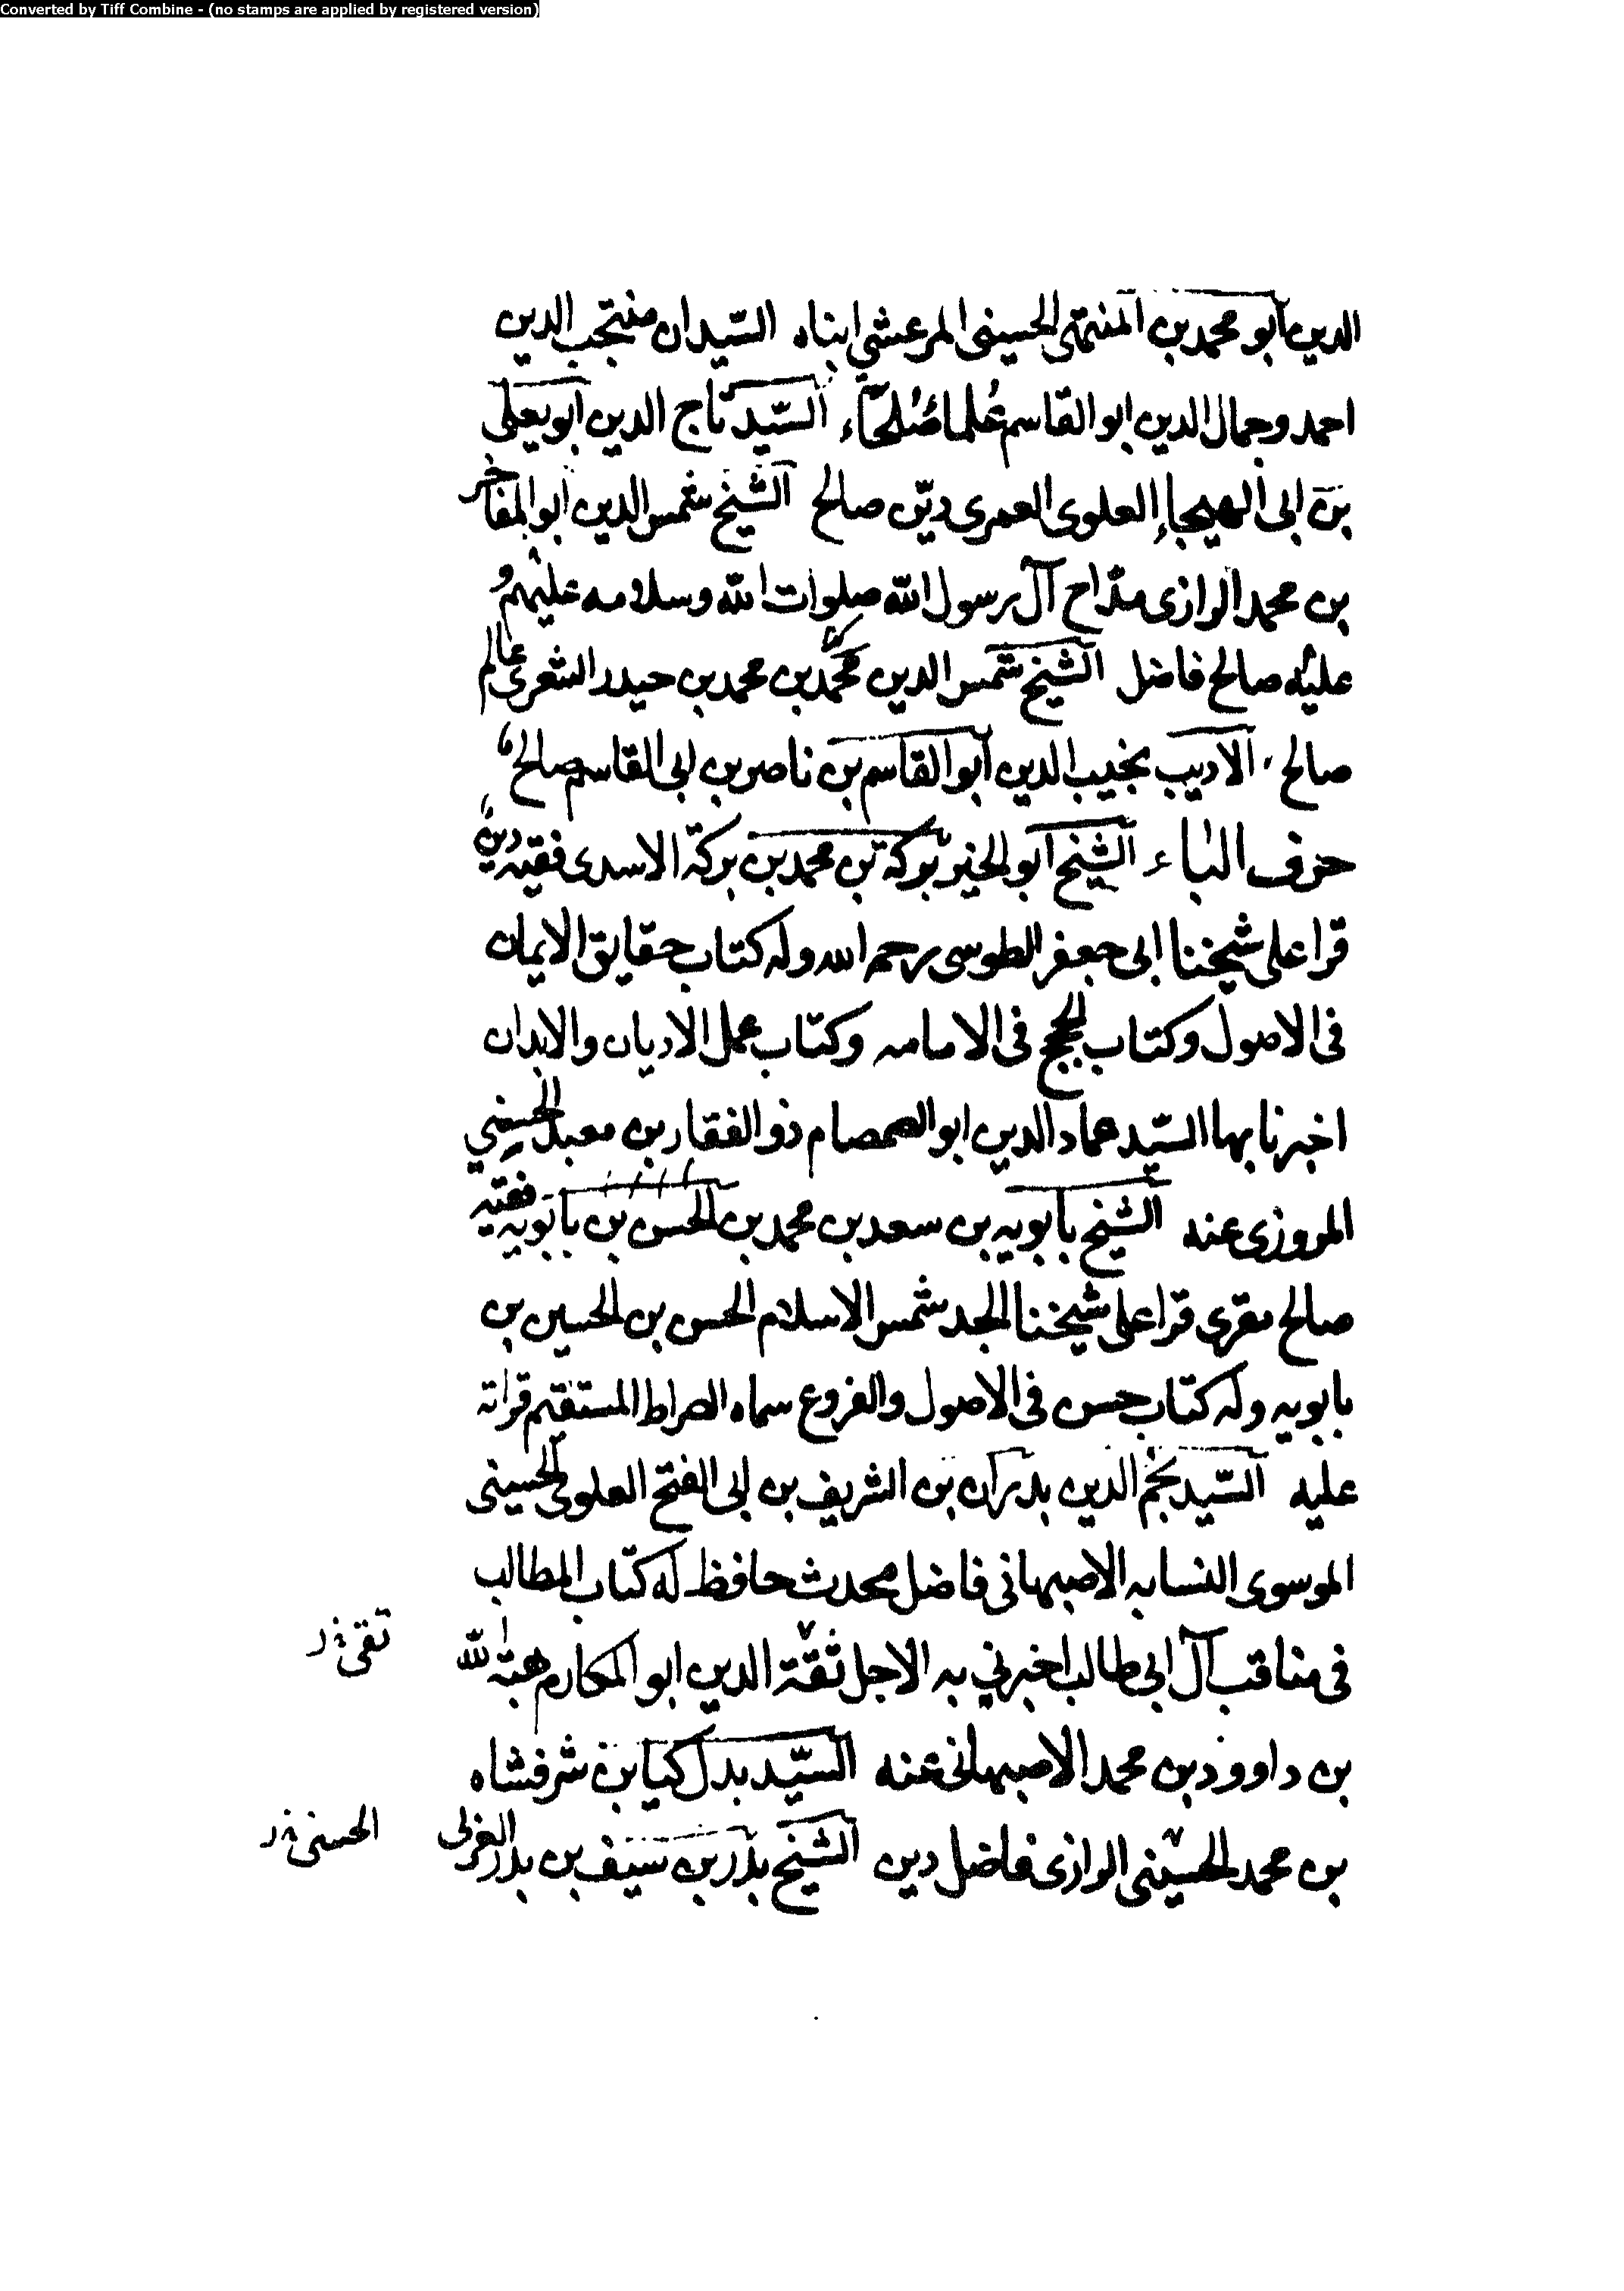 Converted by Tiff Combine - (no stamps are applied by registered version)
الدين أبو محمد بن المنتهى الحسينى المرعشي ابناه السّيدان منتجب الدين
احمد وجمال الدين ابو القاسم عُلماءُ صُلحَاء السّيد تاج الدين ابو يعلى
بن ابى الهيجاء العلوى العمرى ديّن صالح الشيخ شمس الدين ابو المفاخر
بن محمد الرازى مدّاح آل رسول الله صلوات الله وسلامه عليهم و
عليه صالح فاضل الشيخ شمس الدين محمد بن محمد بن حيدر الشعرى عالم
صالح الاديب نجيب الدين أبو القاسم بن ناصر بن ابى القاسم صالح
حرف الباء الشيخ ابو الخير بركة بن محمد بن بركة الاسدى فقيه دين
قرا على شيخنا ابى جعفر الطوسى رحمه الله وله كتاب حقايق الايمان
فى الاصول وكتاب الحجج فى الامامه وكتاب عمل الاديان والابدان
اخبرنا بها السّيد عماد الدين ابو الصمصام ذو الفقار بن معبد الحسيني
المروزى عنه الشيخ بابويه بن سعد بن محمد بن الحسن بن بابويه فقيه
صالح مقرى قرا على شيخنا الجد شمس الاسلام الحسن بن الحسين بن
بابويه وله كتاب حسن فى الاصول والفروع سماه الصراط المستقيم قراته
عليه السّيد نجم الدين بدران بن الشريف بن ابى الفتح العلوى الحسينى
الموسوى النسابه الاصبهانى فاضل محدث حافظ له كتاب المطالب
فى مناقب آل ابى طالب اخبرني به الاجل ثقة الدين ابو المكارم هبة الله
تقى
بن داوود بن محمد الاصبهانى عنه السّيد بدل كيا بن شرفشاه
بن محمد الحسينى الرازى فاضل دين الشيخ بدر بن سيف بن بدر العربى
الحسنى